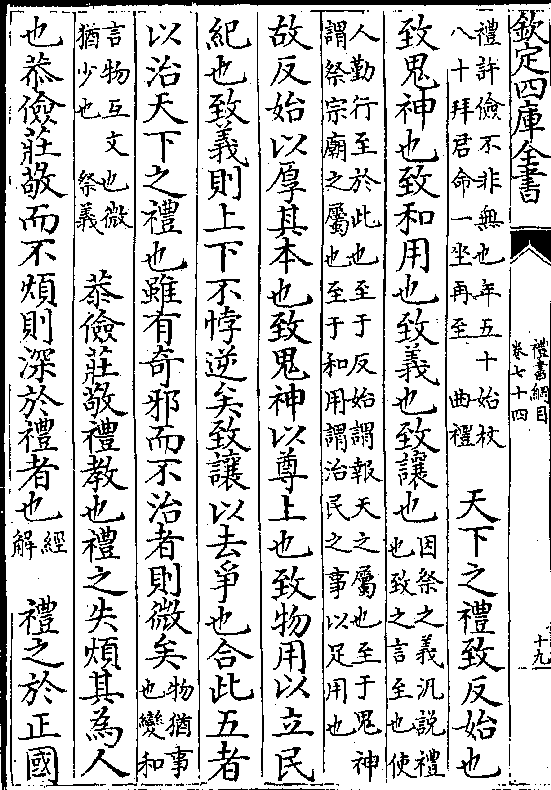 欽定四庫全書
禮書綱目
卷七十四
十九
禮許儉不非無也年五十始杖
八十拜君命一坐再至 曲禮
天下之禮致反始也
致鬼神也致和用也致義也致讓也
因祭之義汎說禮
也致之言至也使
人勤行至於此也至于反始謂報天之屬也至于鬼神
謂祭宗廟之屬也至于和用謂治民之事以足用也
故反始以厚其本也致鬼神以尊上也致物用以立民
紀也致義則上下不悖逆矣致讓以去爭也合此五者
以治天下之禮也雖有奇邪而不治者則微矣
物猶事
也變和
言物互文也微
猶少也 祭義
恭儉莊敬禮教也禮之失煩其為人
也恭儉莊敬而不煩則深於禮者也
經
解
禮之於正國